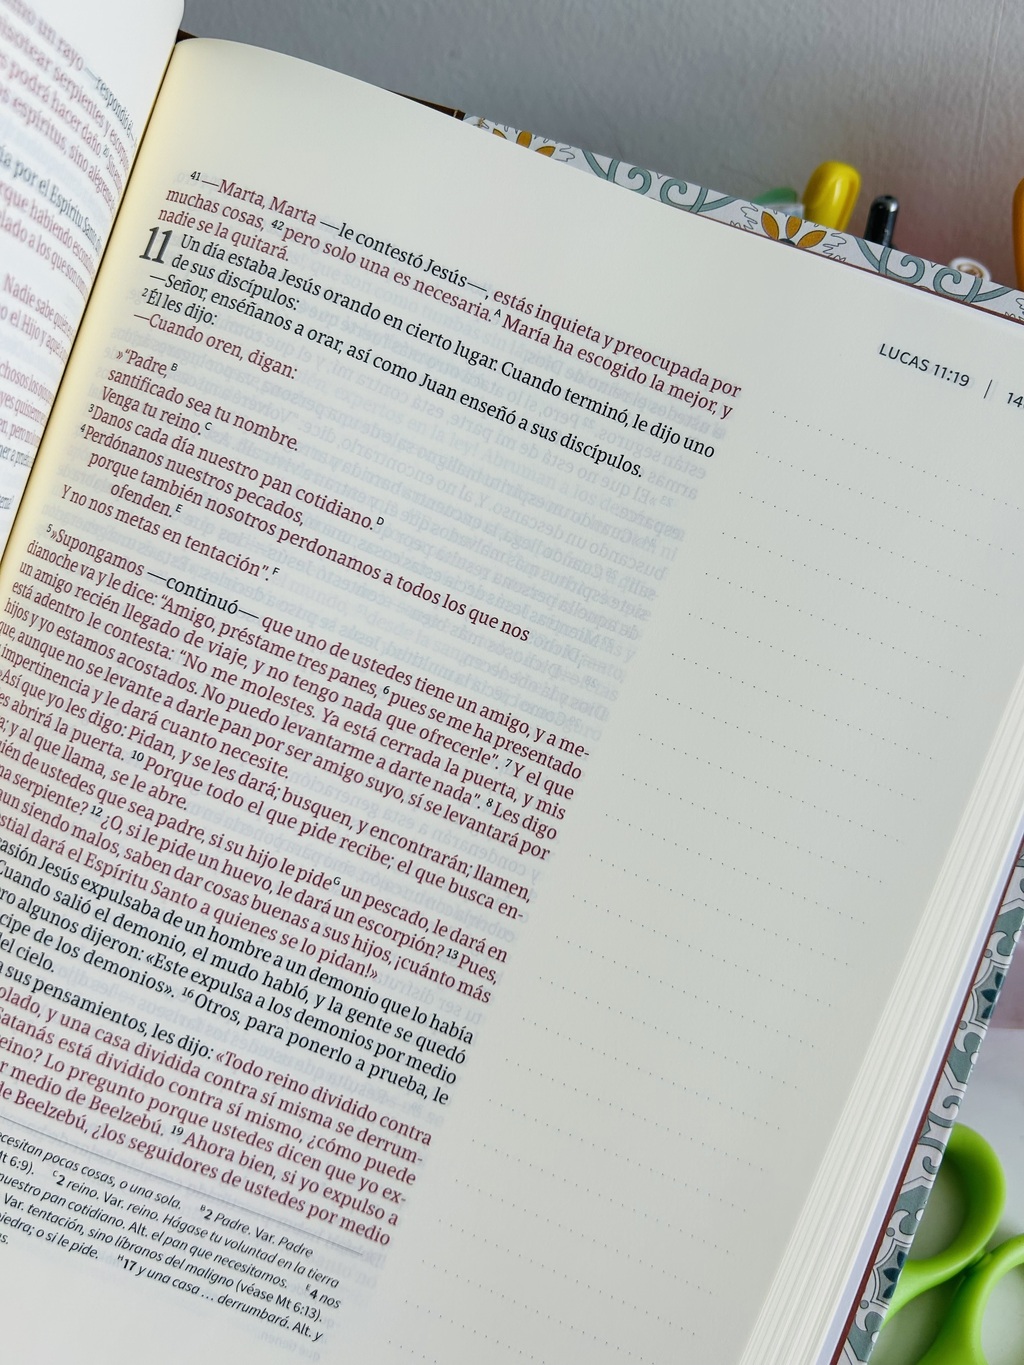 un rayo —respondió
pisotear serpientes y
podrá hacer daño.
espíritus, sino
por el Espíritu Santo
porque habiendo
Nadie sabe
el Hijo y
LUCAS 11:19 | 14
41 —Marta, Marta —le contestó Jesús—, estás inquieta y preocupada por
muchas cosas, 42 pero solo una es necesaria.A María ha escogido la mejor, y
nadie se la quitará.
11 Un día estaba Jesús orando en cierto lugar. Cuando terminó, le dijo uno
de sus discípulos:
—Señor, enséñanos a orar, así como Juan enseñó a sus discípulos.
2 Él les dijo:
—Cuando oren, digan:
»“Padre,B
santificado sea tu nombre.
Venga tu reino.C
3 Danos cada día nuestro pan cotidiano.D
4 Perdónanos nuestros pecados,
porque también nosotros perdonamos a todos los que nos
ofenden.E
Y no nos metas en tentación”.F
5 »Supongamos —continuó— que uno de ustedes tiene un amigo, y a me-
dianoche va y le dice: “Amigo, préstame tres panes, 6 pues se me ha presentado
un amigo recién llegado de viaje, y no tengo nada que ofrecerle”. 7 Y el que
está adentro le contesta: “No me molestes. Ya está cerrada la puerta, y mis
hijos y yo estamos acostados. No puedo levantarme a darte nada”. 8 Les digo
que, aunque no se levante a darle pan por ser amigo suyo, sí se levantará por
impertinencia y le dará cuanto necesite.
»Así que yo les digo: Pidan, y se les dará; busquen, y encontrarán; llamen,
es abrirá la puerta. 10 Porque todo el que pide recibe; el que busca en-
a; y al que llama, se le abre.
ién de ustedes que sea padre, si su hijo le pideG un pescado, le dará en
na serpiente? 12 ¿O, si le pide un huevo, le dará un escorpión? 13 Pues,
aun siendo malos, saben dar cosas buenas a sus hijos, ¡cuánto más
estial dará el Espíritu Santo a quienes se lo pidan!»
asión Jesús expulsaba de un hombre a un demonio que lo había
Cuando salió el demonio, el mudo habló, y la gente se quedó
ro algunos dijeron: «Este expulsa a los demonios por medio
cipe de los demonios». 16 Otros, para ponerlo a prueba, le
del cielo.
a sus pensamientos, les dijo: «Todo reino dividido contra
olado, y una casa dividida contra sí misma se derrum-
Satanás está dividido contra sí mismo, ¿cómo puede
reino? Lo pregunto porque ustedes dicen que yo ex-
r medio de Beelzebú. 19 Ahora bien, si yo expulso a
de Beelzebú, ¿los seguidores de ustedes por medio
ecesitan pocas cosas, o una sola. B2 Padre. Var. Padre
Mt 6:9). C2 reino. Var. reino. Hágase tu voluntad en la tierra
nuestro pan cotidiano. Alt. el pan que necesitamos. E4 nos
Var. tentación, sino líbranos del maligno (véase Mt 6:13).
piedra; o si le pide. H17 y una casa … derrumbará. Alt. y
s.